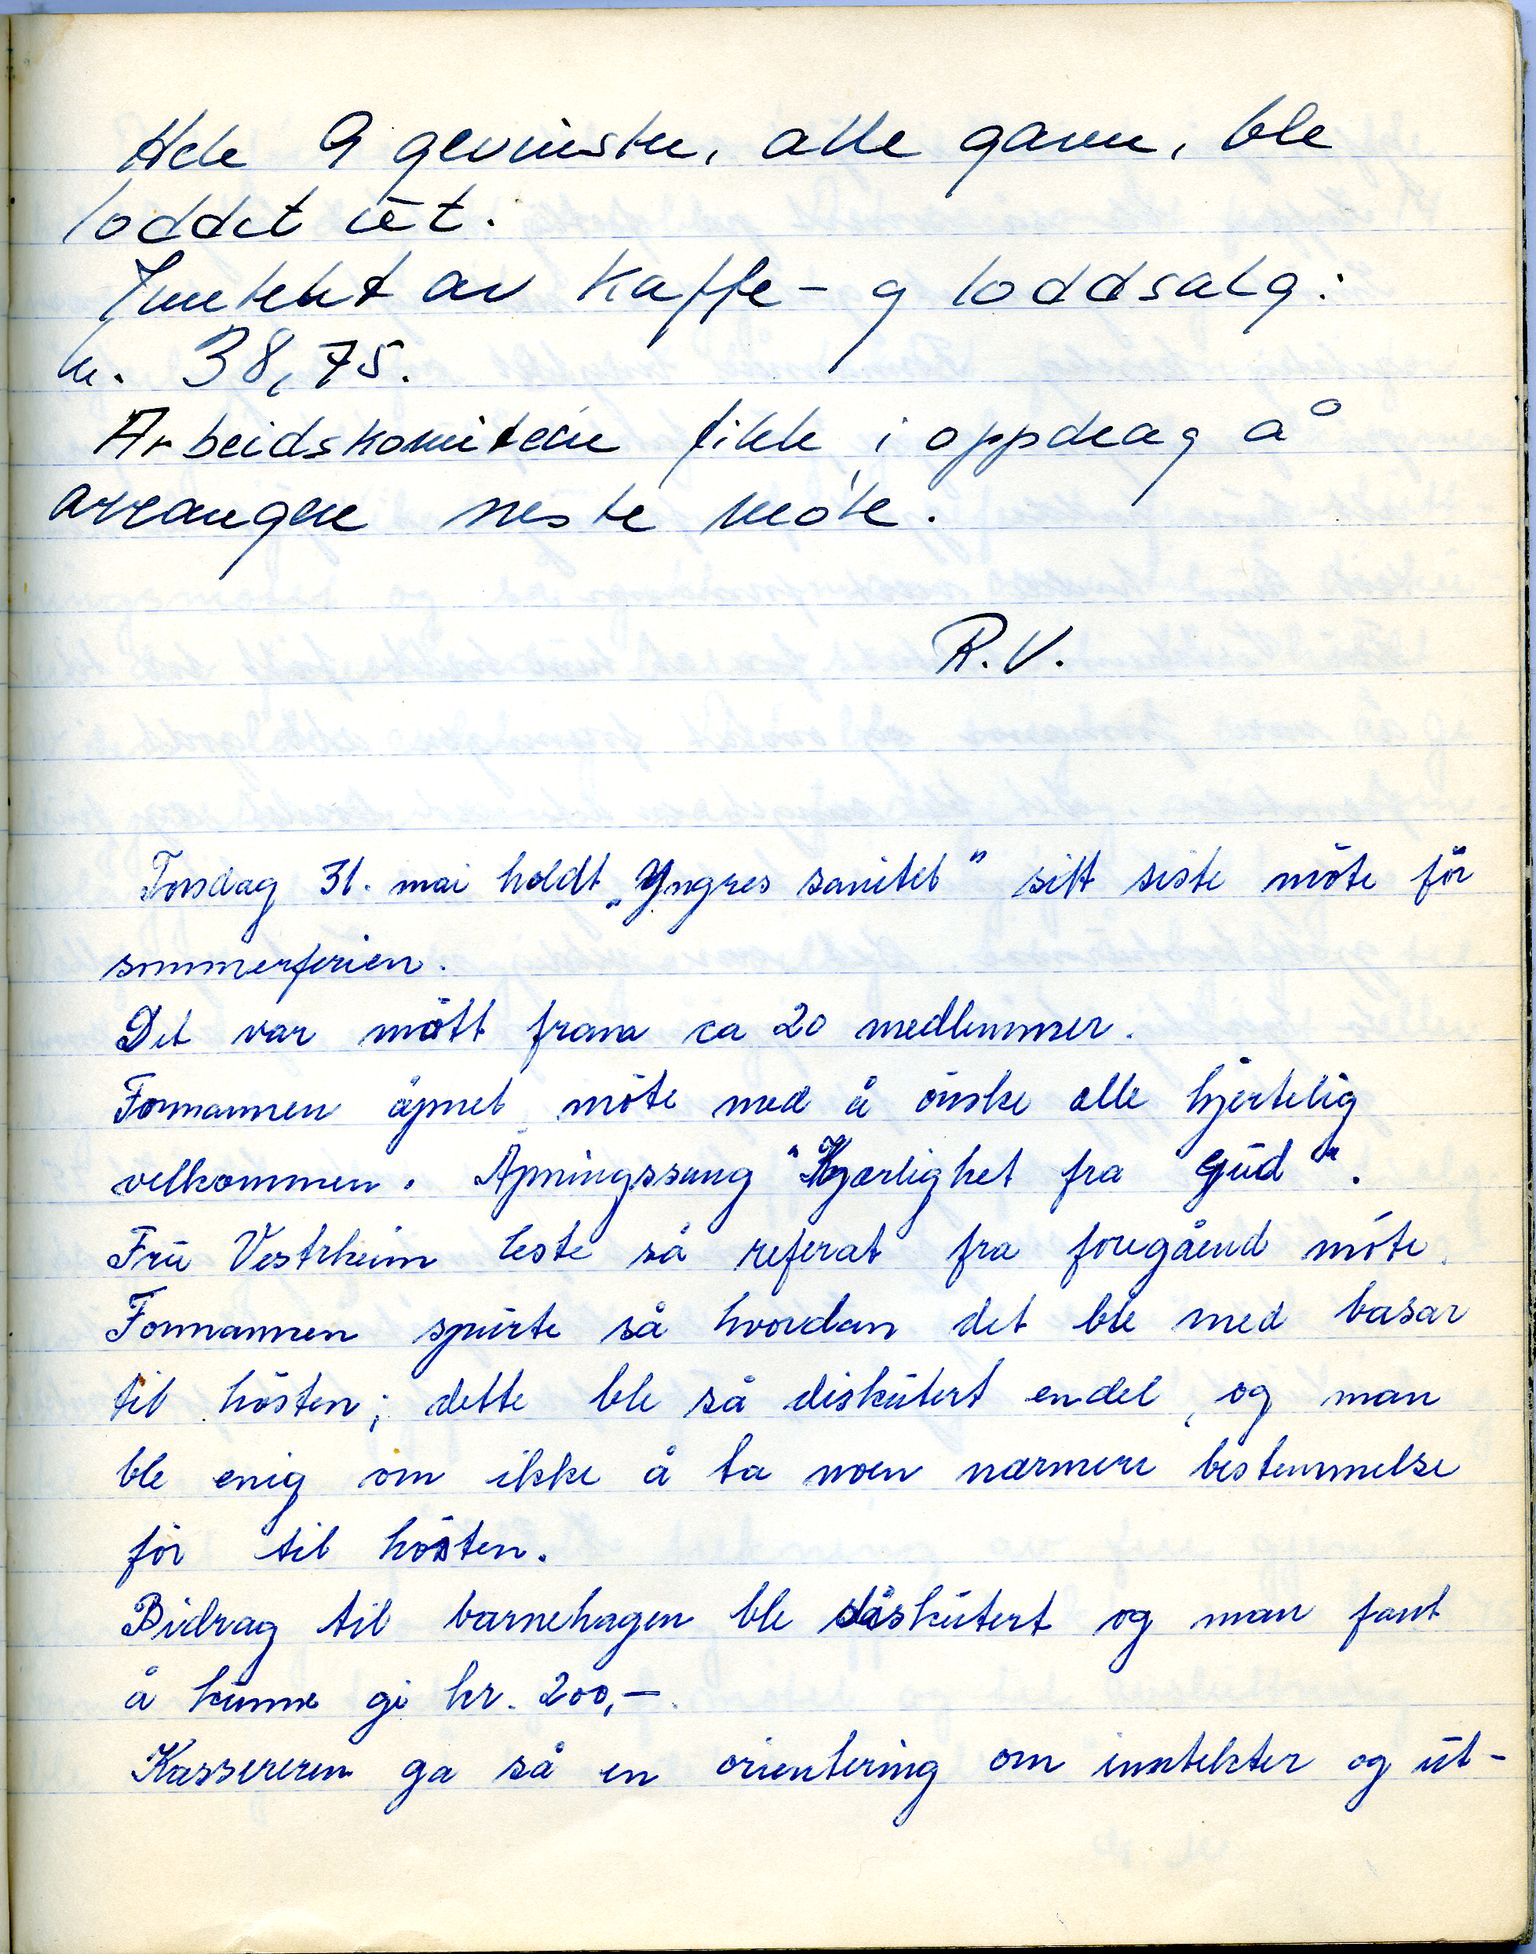 Hele 9 gevinster, alle gaver, ble
loddet ut.
Inntekt av kaffe- og loddsalg:
kr. 38,75.
Arbeidskomiteen fikk i oppdrag å
arrangere neste møte.
R.V.
Torsdag 31. mai holdt „Yngres sanitet" sitt siste möte för
sommerferien.
Det var mött fram ca 20 medlemmer.
Formannen åpnet möte med å önske alle hjertelig
velkommen. Åpningssang "Kjærlighet fra Gud".
Fru Vestrheim leste så referat fra foregåend möte.
Formannen spurte så hvordan det ble med basar
til hösten; dette ble så diskutert endel, og man
ble enig om ikke å ta noen nærmere bestemmelse
för til hösten.
Bidrag til barnehagen ble diskutert og man fant
å kunne gi kr. 200,-
Kassereren ga så en orientering om inntekter og ut-